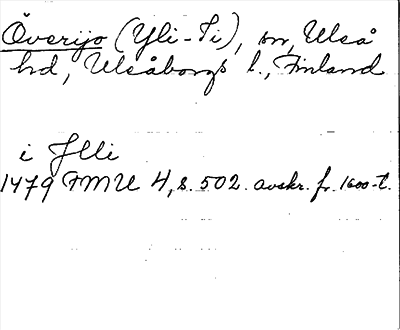 Överijo (Yli-Ii), sn, Uleå
hd, Uleåborgs l., Finland
i Jlli
1479 FMU 4, s. 502. avskr. fr. 1600-t.